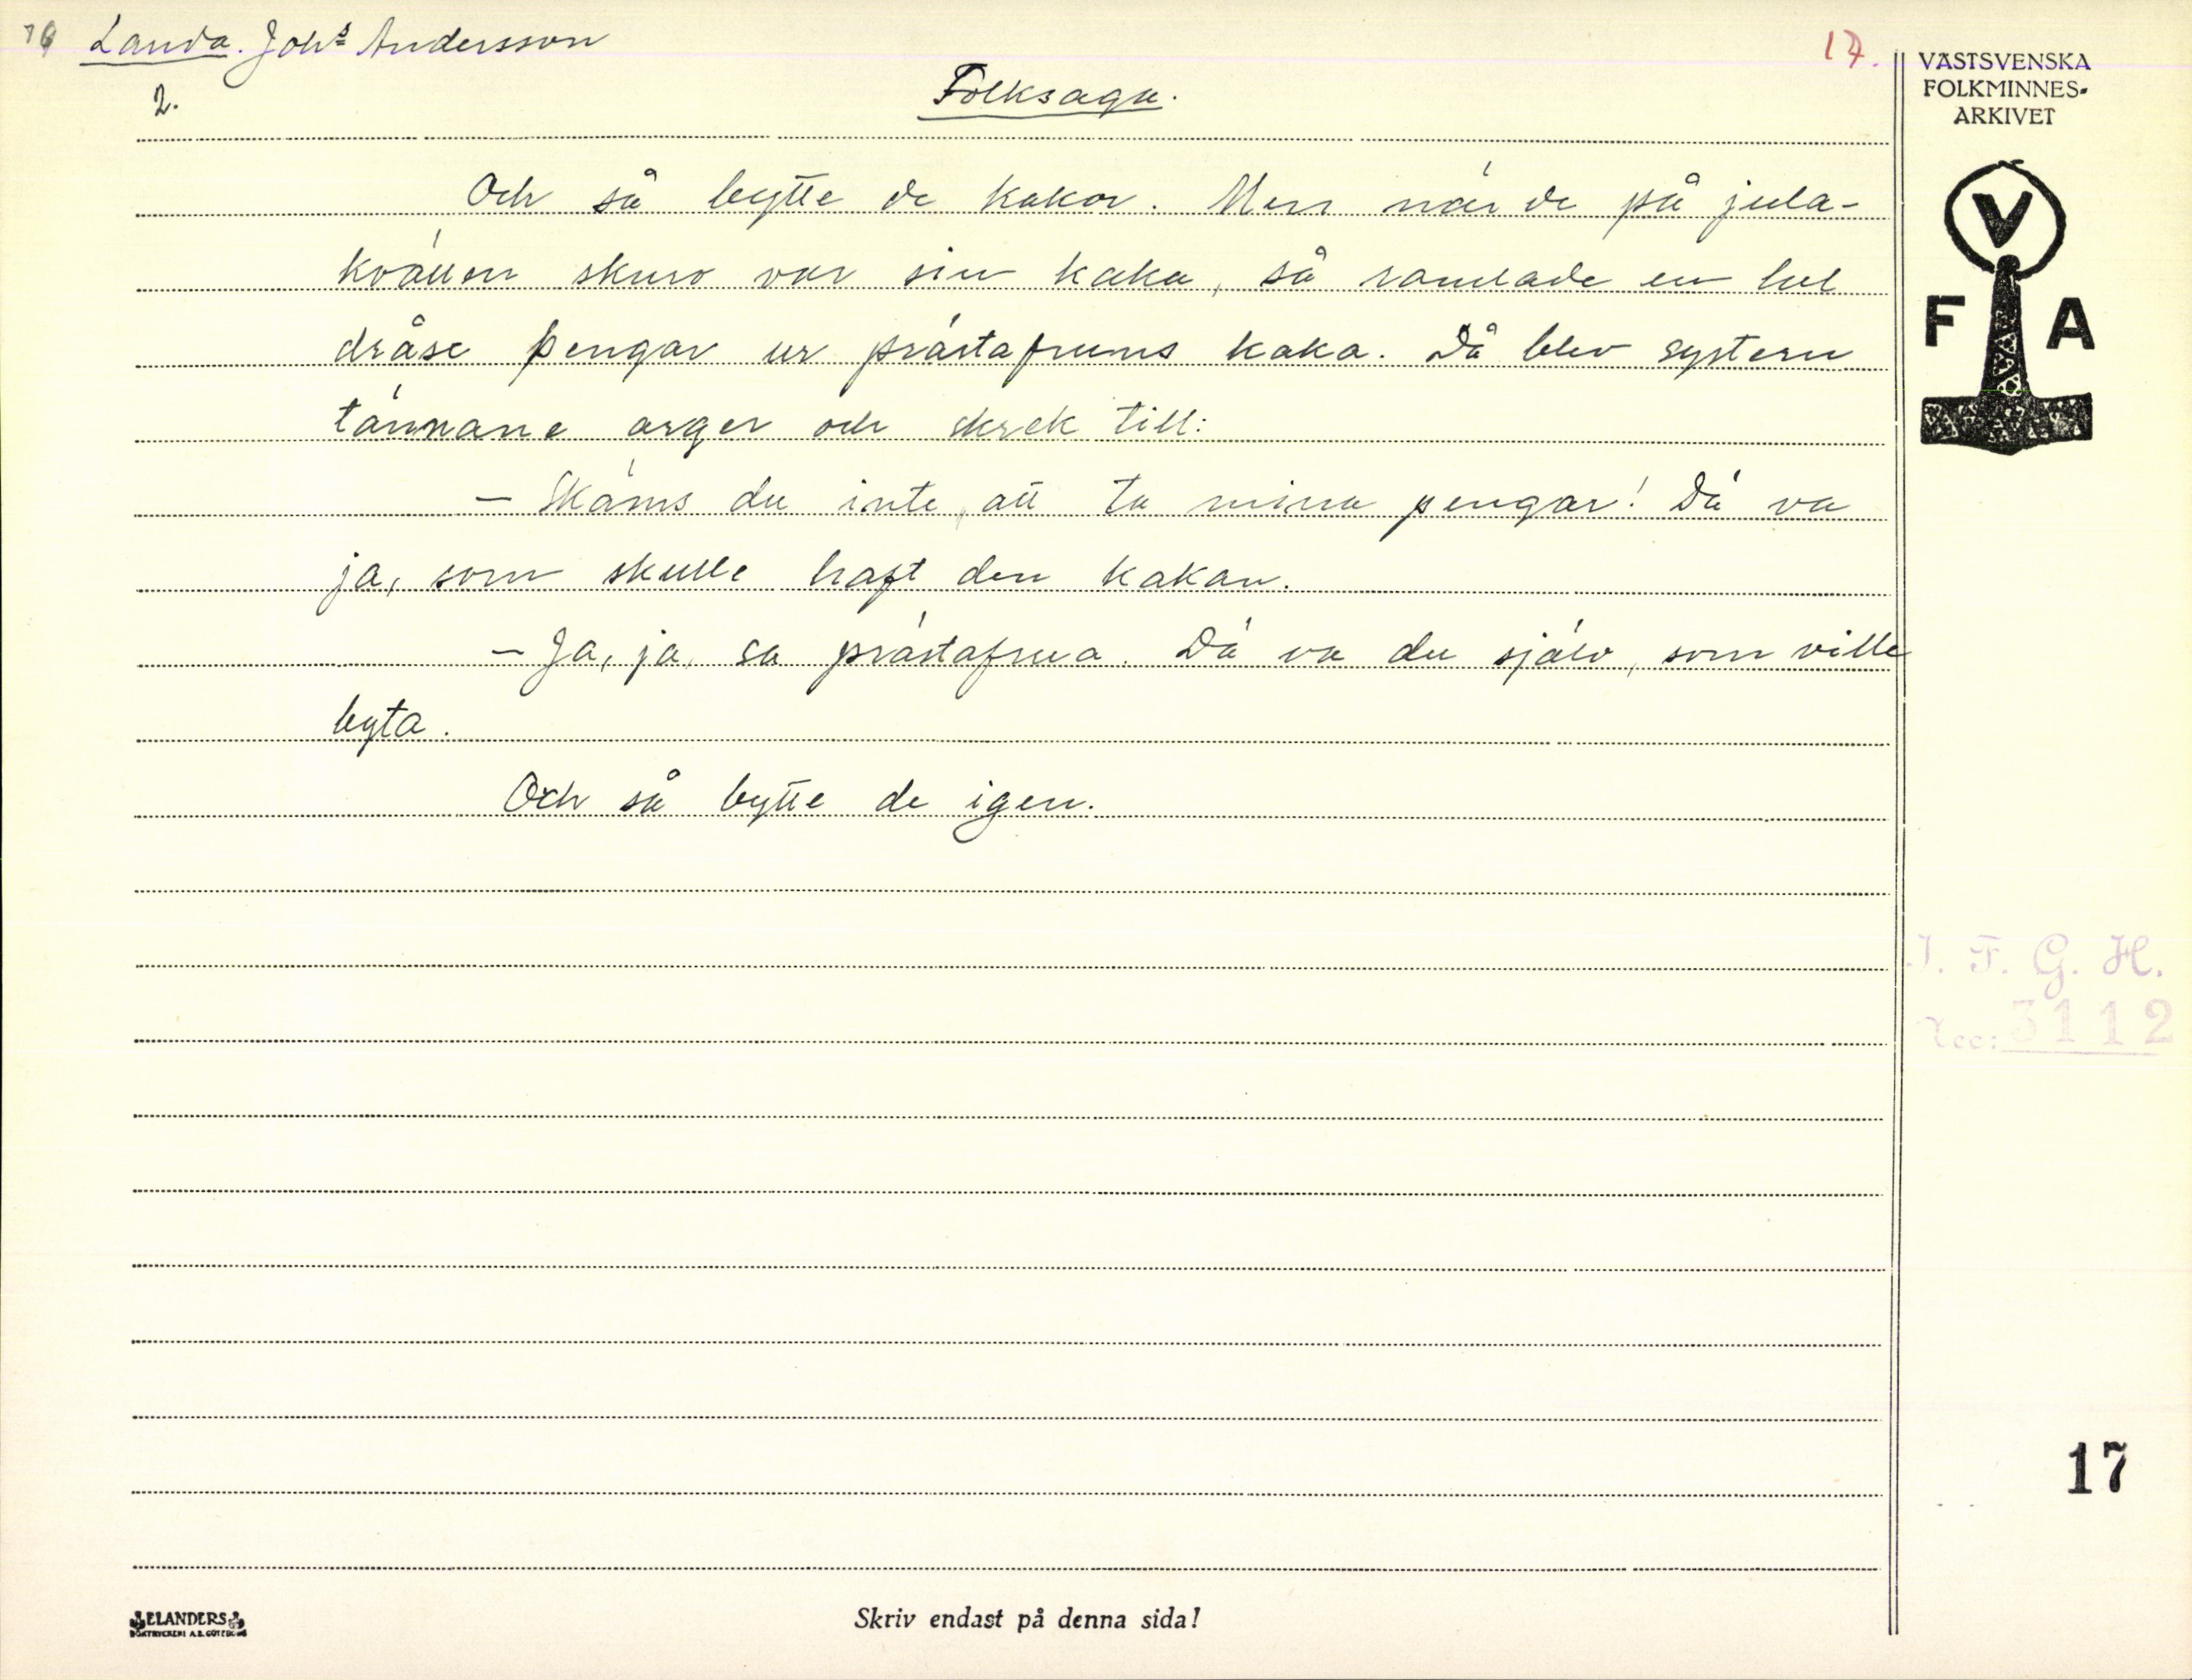 Landa. Johs Andersson
17.
2.
Folksaga.
Och så bytte de kakor. Men när de på jula-
kvällen skuro var sin kaka, så ramlade en hel
dråse pengar ur prästafruns kaka. Då blev systern
arger och skrek till:
— Skäms du inte, att ta mina pengar! Dä va
ja, som skulle haft den kakan.
— Ja, ja, sa prästafrua. Dä va du själv, som ville
byta.
Och så bytte de igen.
VÄSTSVENSKA
FOLKMINNES-
ARKIVET
V
F A
I. F. G. H.
Acc: 3112
17
ELANDERS
BOKTRYCKERI A.B. GÖTEBORG
Skriv endast på denna sida!